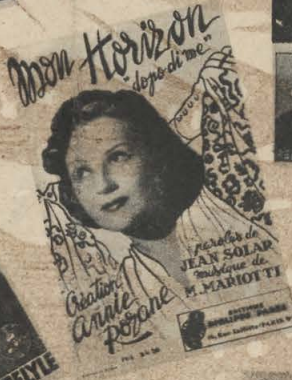 mon Horizon
"dopo di me"
paroles de
JEAN SOLAR
musique de
M. MARIOTTI
Création
annie
Rozane
EDITIONS
PARIS